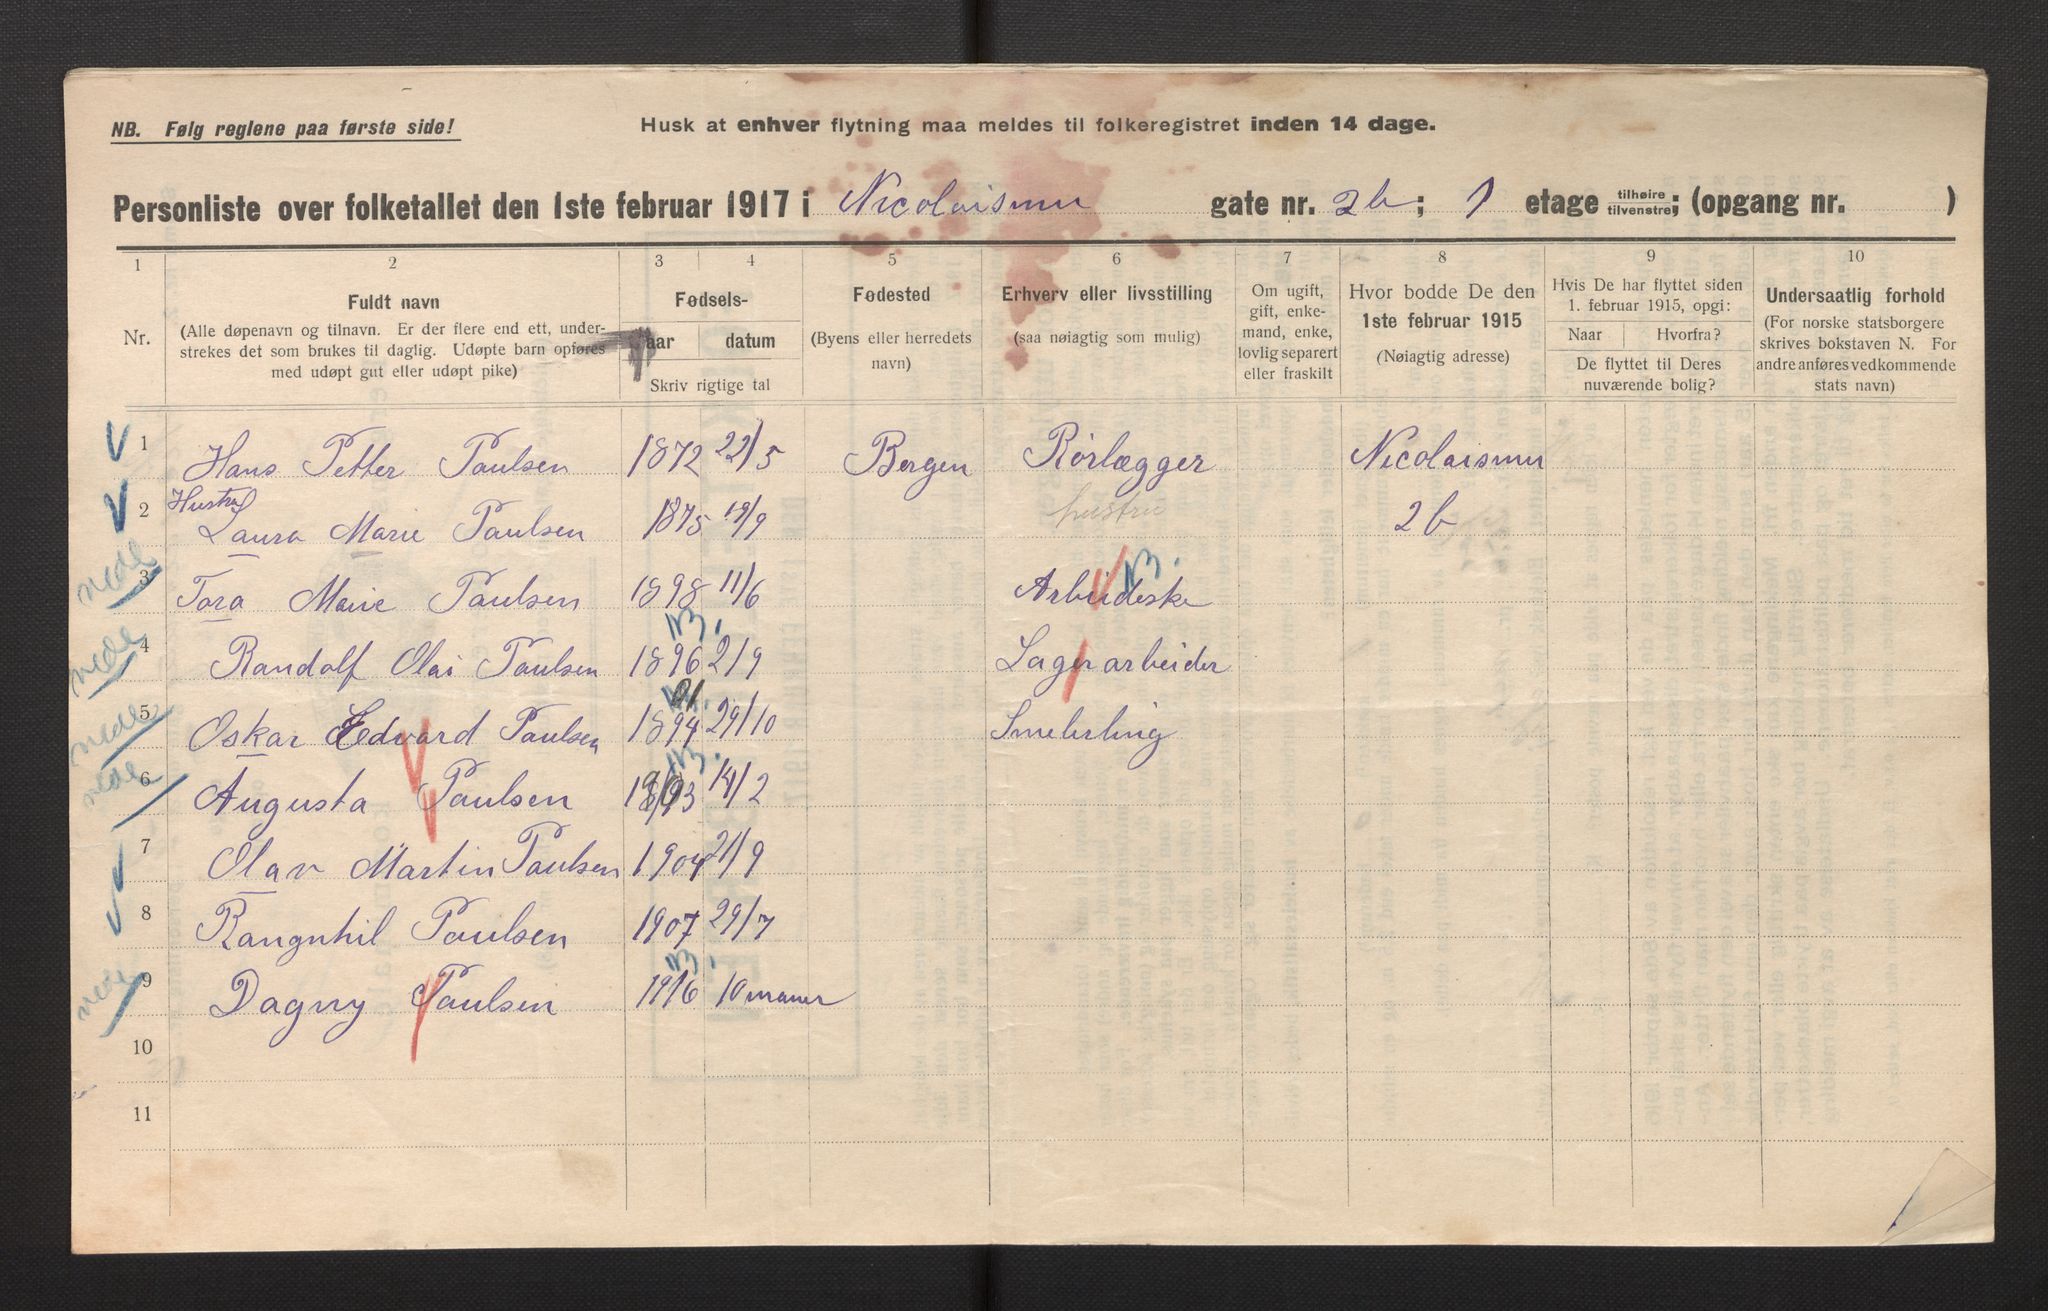 NB. Følg reglene paa første side!
Husk at enhver flytning maa meldes til folkeregistret inden 14 dage.
Personliste over folketallet den 1ste februar 1917 i Nicolaismu gate nr. 2b; 1 etage tilhøire tilvenstre; (opgang nr. )
1 2 3 4 5 6 7 8 9 10
Nr.
Fuldt navn
(Alle døpenavn og tilnavn. Er der flere end ett, under-
strekes det som brukes til daglig. Udøpte barn opføres
med udøpt gut eller udøpt pike)
Fødsels-
aar datum
Skriv rigtige tal
Fødested
(Byens eller herredets
navn)
Erhverv eller livsstilling
(saa nøiagtig som mulig)
Om ugift,
gift, enke-
mand, enke,
lovlig separert
eller fraskilt
Hvor bodde De den
1ste februar 1915
(Nøiagtig adresse)
Hvis De har flyttet siden
1. februar 1915, opgi:
Naar Hvorfra?
De flyttet til Deres
nuværende bolig?
Undersaatlig forhold
(For norske statsborgere
skrives bokstaven N. For
andre anføres vedkommende
stats navn)
1 Hans Petter Paulsen 1872 22/5 Bergen Rörlægger Nicolaismu
Hustru
2 Laura Marie Paulsen 1875 19/9 hustru 2b
nede 3 Tora Marie Paulsen 1898 11/6 Arbeideske
nede 4 Randolf Olai Paulsen 1896 2/9 Lagerarbeider
nede 5 Oskar Edvard Paulsen 29/10
nede 6 Augusta Paulsen 14/2
7 Olav Martin Paulsen 1904 21/9
8 Rangnhil Paulsen 1907 29/7
nede 9 Dagny Paulsen 1916 10 maaner
10
11